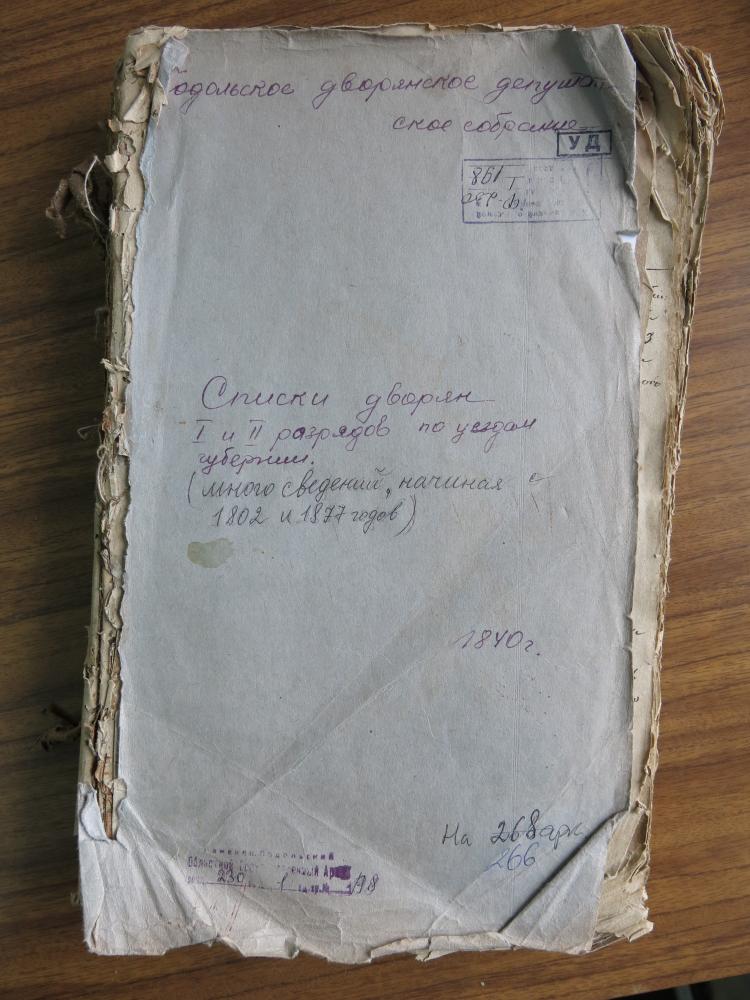 одольское дворянское депутат
ское собрание
УД
851
I
Списки дворян
I и II разрядов по уездам
губернии.
(много сведений, начиная с
1802 и 1877 годов)
1840г.
На 268 арк
266
аменец-Подольский
Областной Архив
230 1 198